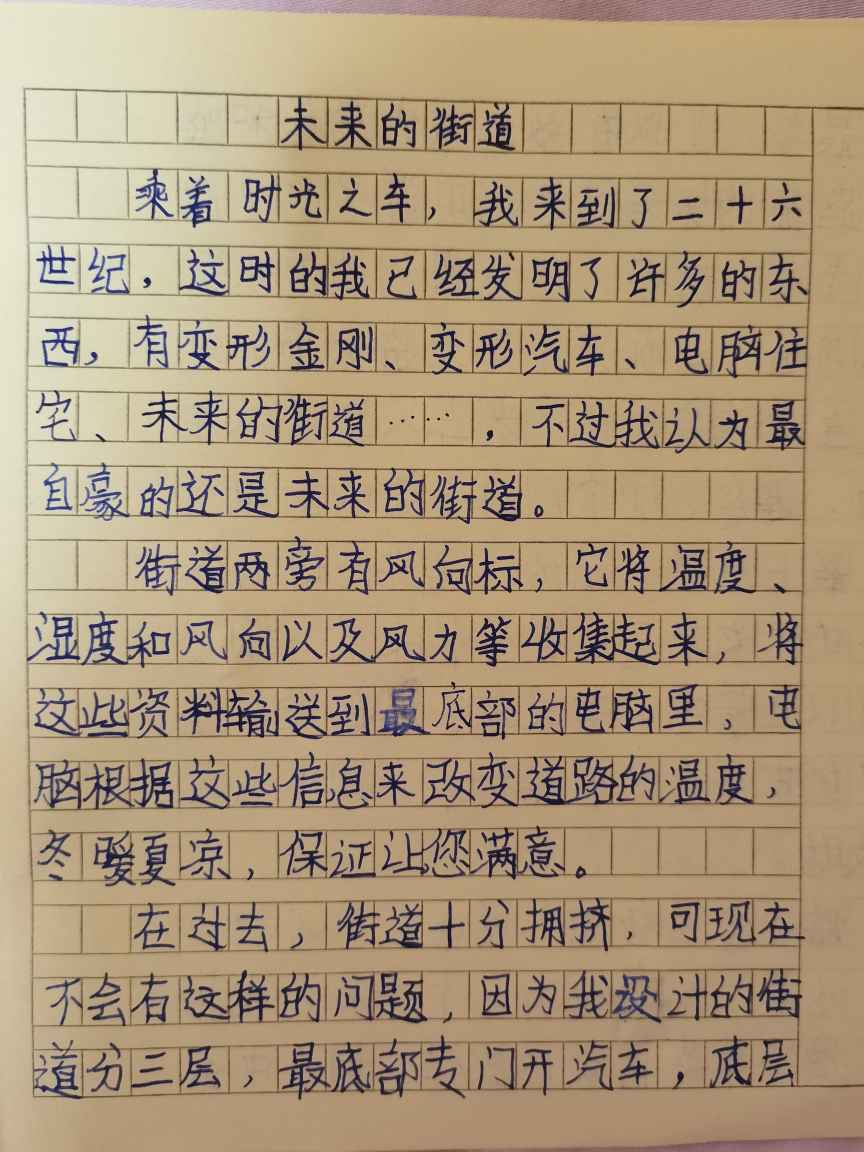 未来的街道
乘着时光之车，我来到了二十六
世纪，这时的我已经发明了许多的东
西，有变形金刚、变形汽车、电脑住
宅、未来的街道……，不过我认为最
自豪的还是未来的街道。
街道两旁有风向标，它将温度、
湿度和风向以及风力等收集起来，将
这些资料输送到最底部的电脑里，电
脑根据这些信息来改变道路的温度，
冬暖夏凉，保证让您满意。
在过去，街道十分拥挤，可现在
不会有这样的问题，因为我设计的街
道分三层，最底部专门开汽车，底层